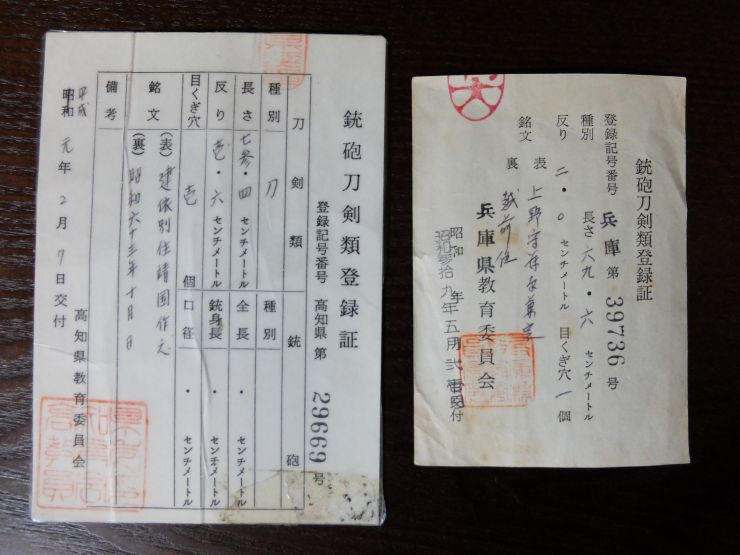 銃砲刀剣類登録証
登録記号番号 高知県 第 29669 号
刀剣類
銃砲
種別 刀
長さ 七参・四 センチメートル
反り 壱・六 センチメートル
目くぎ穴 壱 個
種別
全長 ・ センチメートル
銃身長 ・ センチメートル
口径 ・ センチメートル
銘文
(表) 建依別住靖国作之
(裏) 昭和六十三年十月日
備考
高知県教育委員会
平成
昭和 元年 2月 7日交付
銃砲刀剣類登録証
登録記号番号 兵庫 第 39736 号
種別
長さ 六九・六 センチメートル
反り 二・〇 センチメートル 目くぎ穴 一 個
銘文
表 上野守
裏 越前住
兵庫県教育委員会
昭和 年
昭和参拾九年五月弐 日交付